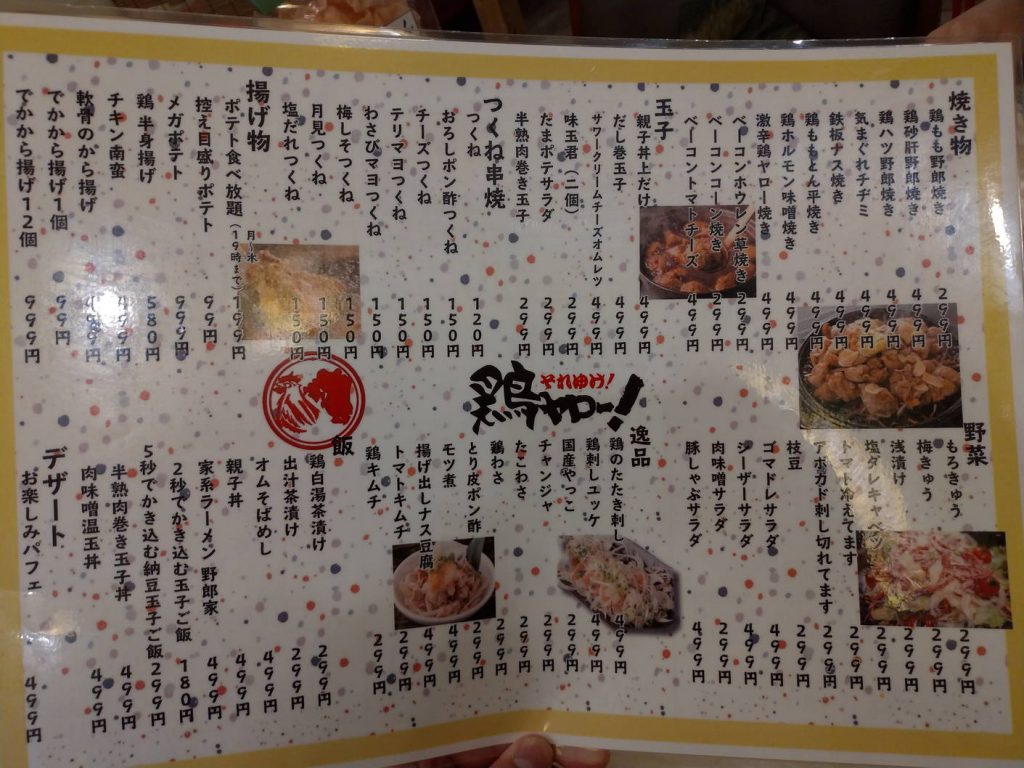 焼き物
鶏もも野郎焼き 299円
鶏砂肝野郎焼き 499円
鶏ハツ野郎焼き 499円
気まぐれチヂミ 499円
鉄板ナス焼き 499円
鶏ももとん平焼き 499円
鶏ホルモン味噌焼き 499円
激辛鶏ヤロー焼き 499円
ベーコンホウレン草焼き 299円
ベーコンコーン焼き 299円
ベーコントマトチーズ 499円
玉子
親子丼上だけ 499円
だし巻玉子 499円
サワークリームチーズオムレツ 499円
味玉君（二個） 299円
たまポテサラダ 299円
半熟肉巻き玉子 299円
つくね串焼
つくね 120円
おろしポン酢つくね 150円
チーズつくね 150円
テリマヨつくね 150円
わさびマヨつくね 150円
梅しそつくね 150円
月見つくね 150円
塩だれつくね 150円
揚げ物
ポテト食べ放題（19時まで） 月〜木 199円
控え目盛りポテト 99円
メガポテト 999円
鶏 半身揚げ 580円
チキン南蛮 499円
軟骨のから揚げ 499円
でかから揚げ1個 99円
でかから揚げ12個 999円
それゆけ!
鶏ヤロー!
野菜
もろきゅう 299円
梅きゅう 299円
浅漬け 299円
塩ダレキャベツ 299円
トマト冷えてます 299円
アボガド刺し切れてます 299円
枝豆 299円
ゴマドレサラダ 499円
シーザーサラダ 499円
肉味噌サラダ 299円
豚しゃぶサラダ 499円
逸品
鶏のたたき刺し 499円
鶏刺しユッケ 499円
国産やっこ 299円
チャンジャ 299円
たこわさ 299円
鶏わさ 299円
とり皮ポン酢 299円
モツ煮 499円
揚げ出しナス豆腐 499円
トマトキムチ 299円
鶏キムチ 299円
飯
鶏白湯茶漬け 299円
出汁茶漬け 299円
オムそばめし 499円
親子丼 499円
家系ラーメン 野郎家 499円
2秒でかき込む玉子ご飯 180円
5秒でかき込む納豆玉子ご飯 299円
半熟肉巻き玉子丼 499円
肉味噌温玉丼 499円
デザート
お楽しみパフェ 499円